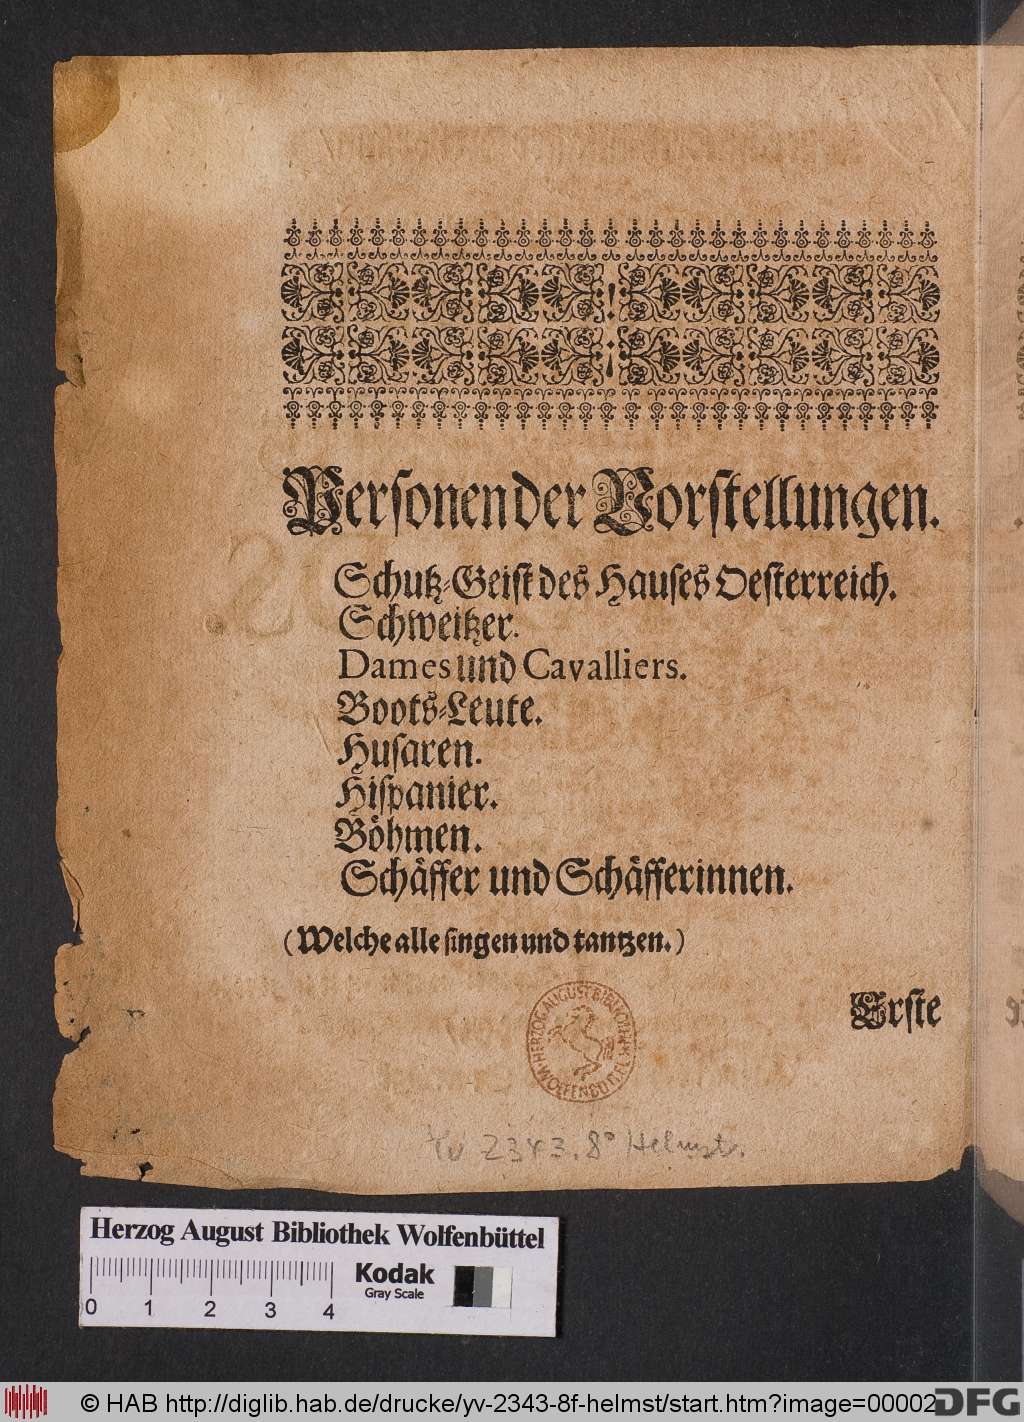 Personen der Vorstellungen.
Schutz-Geist des Hauses Oesterreich.
Schweitzer.
Dames und Cavalliers.
Boots-Leute.
Husaren.
Hispanier.
Böhmen.
Schäffer und Schäfferinnen.
(Welche alle singen und tantzen.)
Erste
HERZOG AUGUST BIBLIOTHEK
WOLFENBÜTTEL
2343.8° Helmst.
Herzog August Bibliothek Wolfenbüttel
Kodak
Gray Scale
0 1 2 3 4
© HAB http://diglib.hab.de/drucke/yv-2343-8f-helmst/start.htm?image=00002
DFG